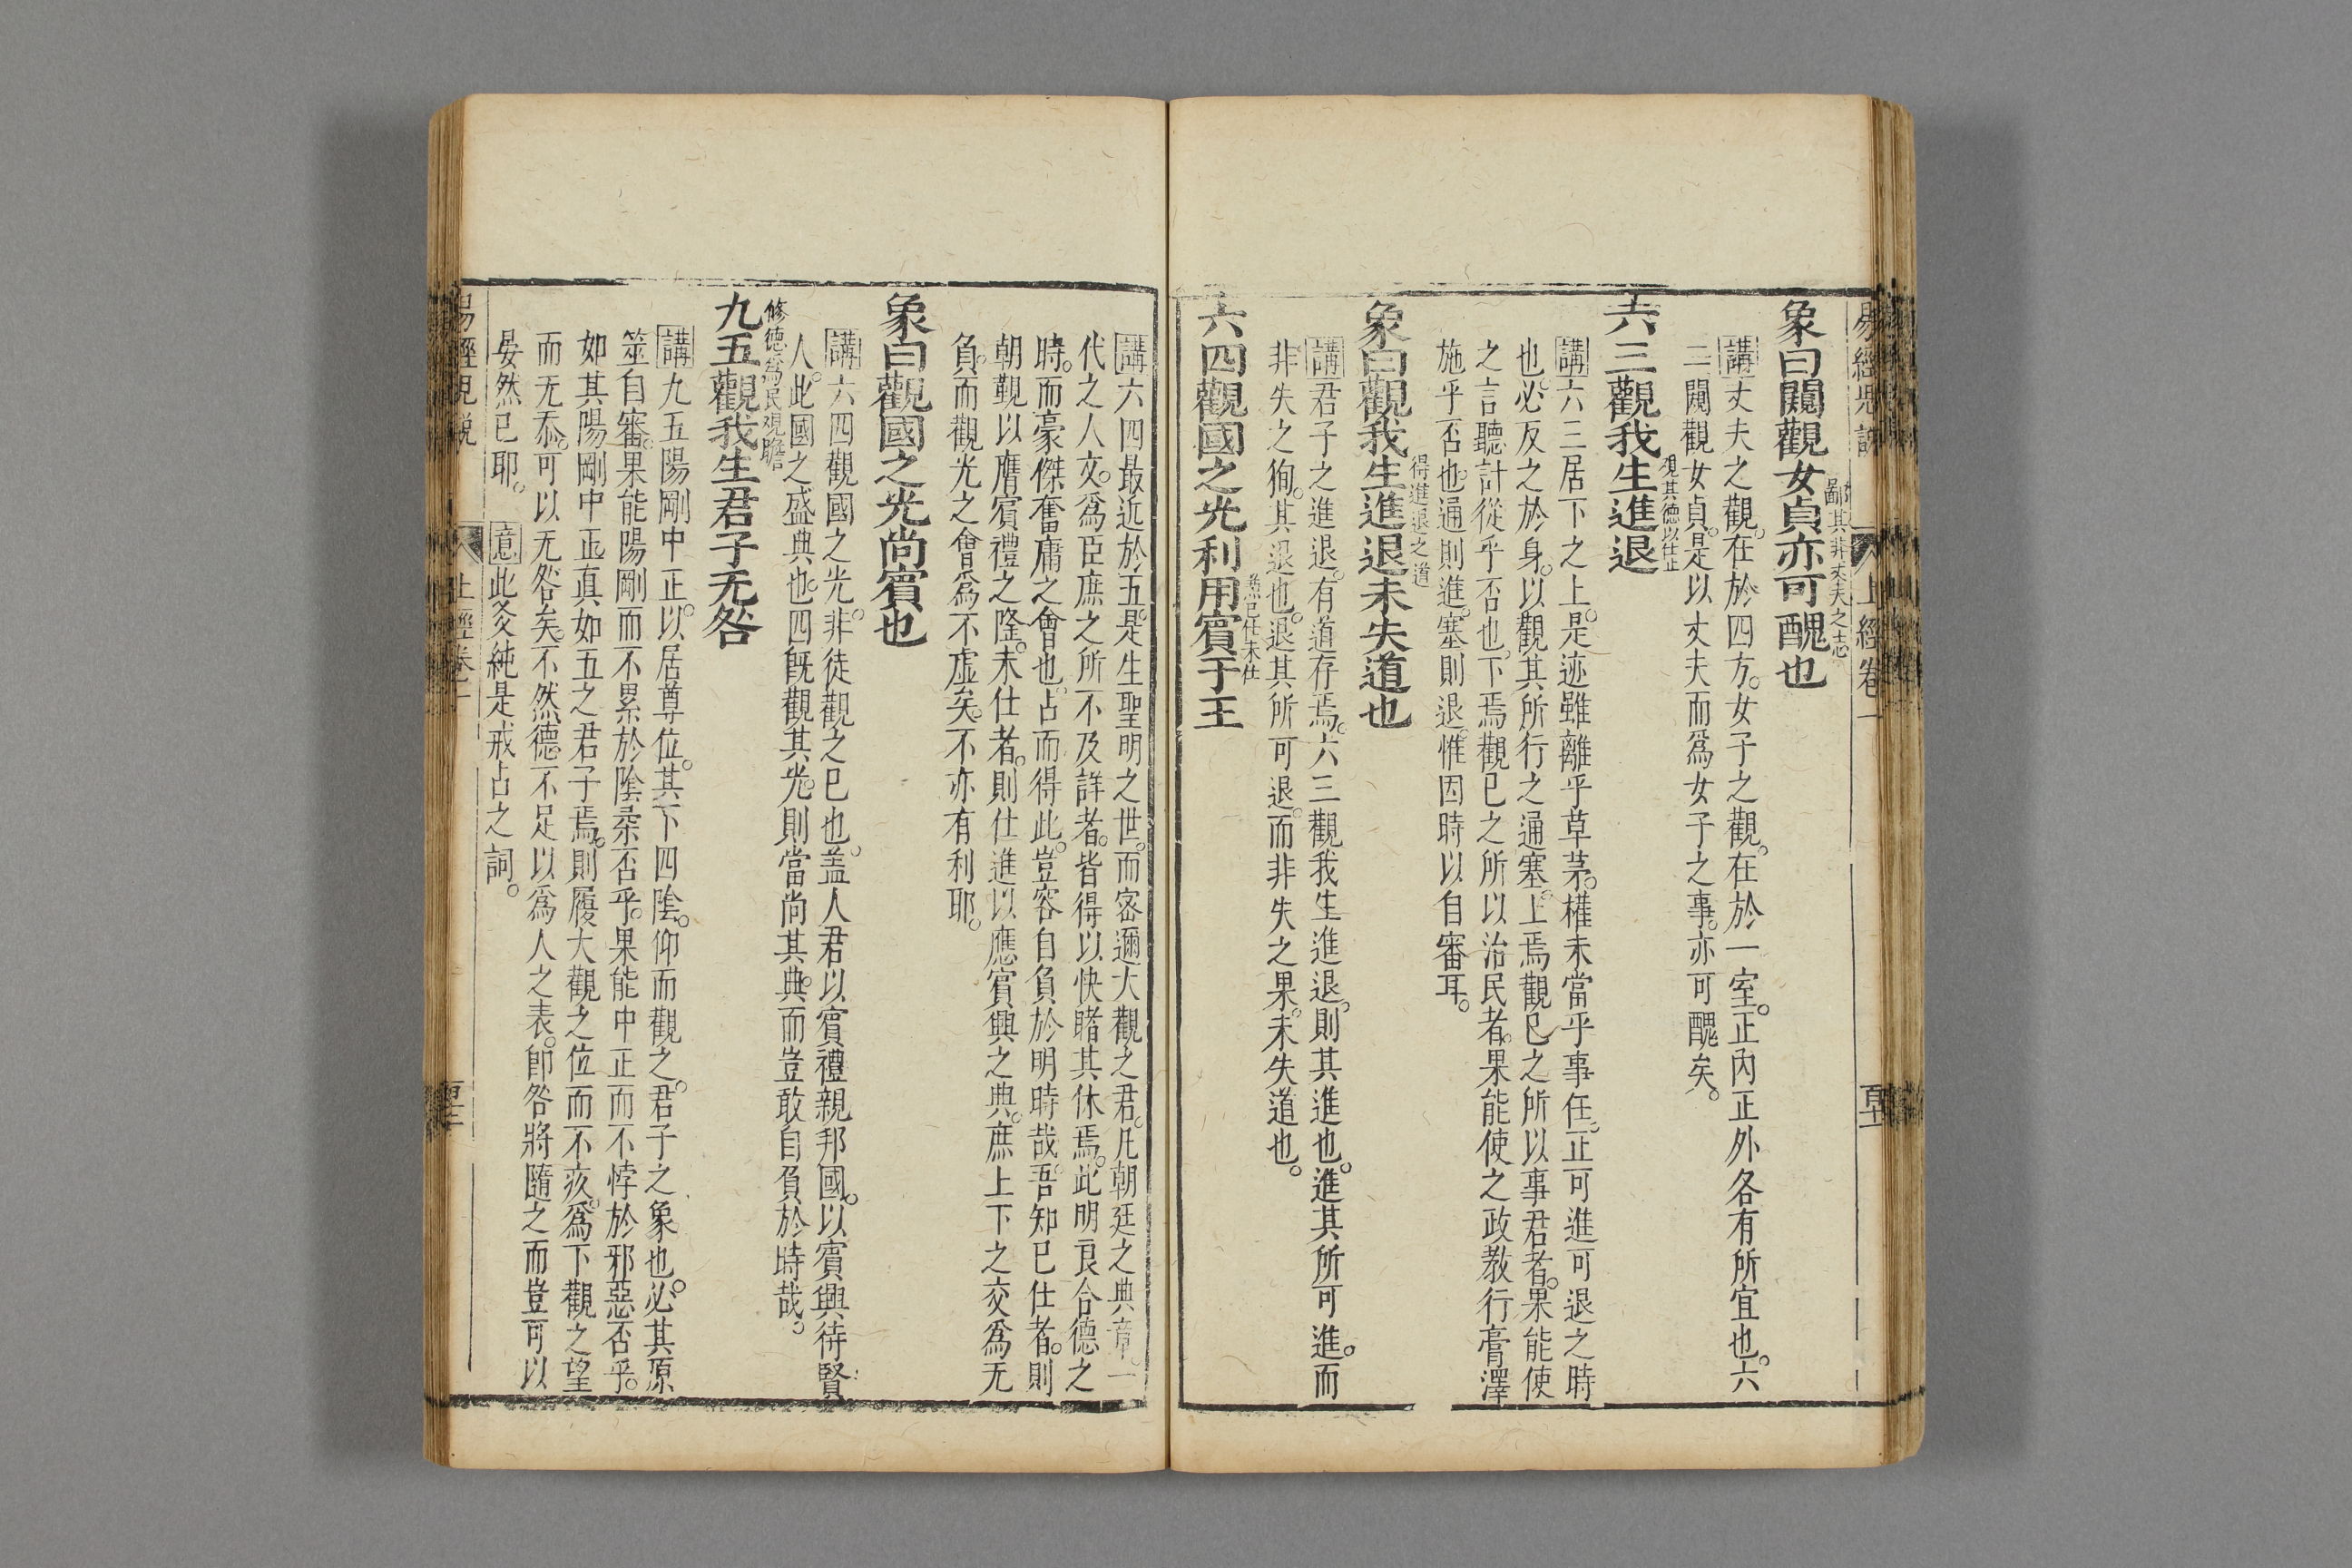 易經
上經卷一
象曰闚觀女貞亦可醜也
鄙其非丈夫之志
講丈夫之觀。在於四方。女子之觀。在於一室。正內正外各有所宜也。六
二闚觀女貞。是以丈夫而爲女子之事。亦可醜矣。
六三觀我生進退
視其德以仕止
講六三居下之上。是迹雖離乎草茅。權未當乎事任。正可進可退之時
也。必反之於身。以觀其所行之通塞。上焉觀己之所以事君者。果能使
之言聽計從乎否也。下焉觀已之所以治民者。果能使之政教行膏澤
施乎否也。通則進。塞則退。惟因時以自審耳。
象曰觀我生進退未失道也
得進退之道
講君子之進退。有道存焉。六三觀我生進退。則其進也。進其所可進。而
非失之狥。其退也。退其所可退。而非失之果。未失道也。
六四觀國之光利用賓于王
講六四最近於五。是生聖明之世。而密邇大觀之君。凡朝廷之典章。一
代之人文。爲臣庶之所不及詳者。皆得以快睹其休焉。此明良合德之
時。而豪傑奮庸之會也。占而得此。豈容自負於明時哉。吾知已仕者。則
朝覲以膺賓禮之隆。未仕者。則仕進以應賓興之典。庶上下之交爲无
負。而觀光之會爲不虛矣。不亦有利耶。
象曰觀國之光尚賓也
講六四觀國之光。非徒觀之已也。盖人君以賓禮親邦國。以賓興待賢
人。此國之盛典也。四旣觀其光。則當尚其典。而豈敢自負於時哉。
修德爲民視瞻
九五觀我生君子无咎
講九五陽剛中正。以居尊位。其下四陰。仰而觀之。君子之象也。必其原
筮自審。果能陽剛而不累於陰柔否乎。果能中正而不悖於邪惡否乎。
如其陽剛中正眞如五之君子焉。則履大觀之位而不疚。爲下觀之望
而无忝。可以无咎矣。不然德不足以爲人之表。卽咎將隨之而豈可以
晏然已耶。意此爻純是戒占之詞。